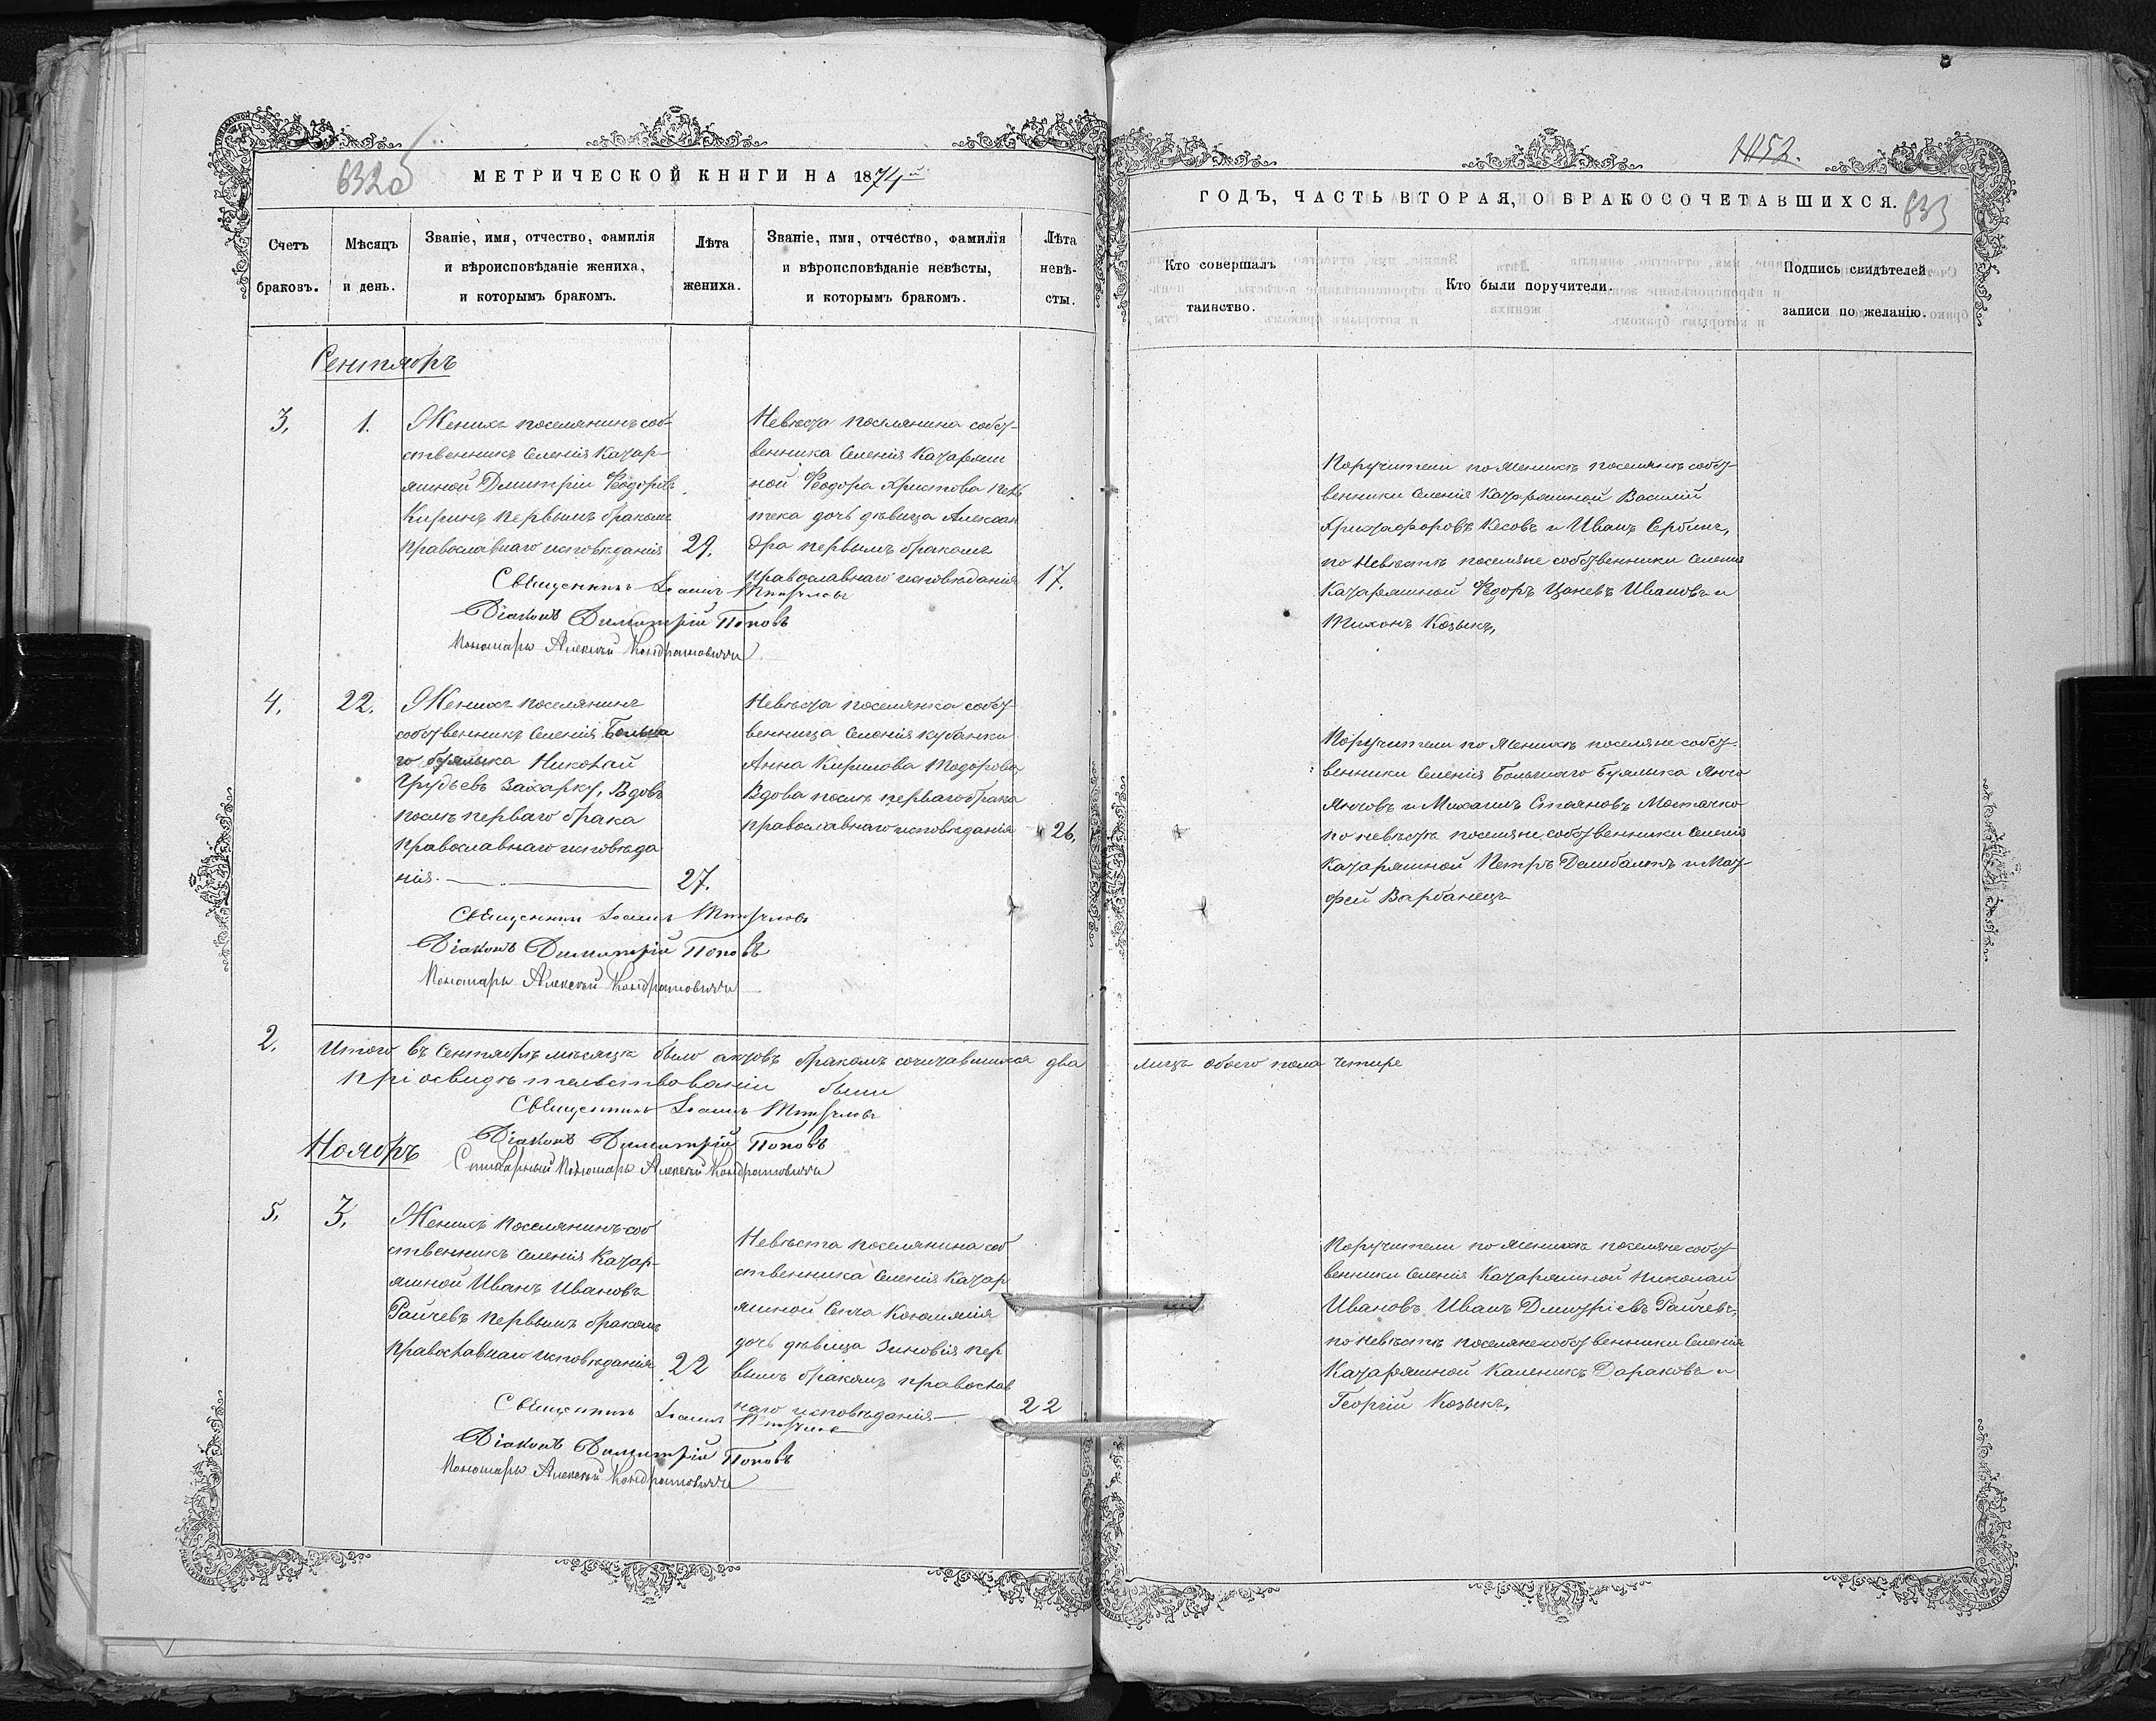 632об
МЕТРИЧЕСКОЙ КНИГИ НА 1874й
Счетъ
браковъ.
Мѣсяцъ
и день.
Званіе, имя, отчество, фамилія
и вѣроисповѣданіе жениха,
и которымъ бракомъ.
Лѣта
жениха.
Званіе, имя, отчество, фамилія
и вѣроисповѣданіе невѣсты,
и которымъ бракомъ.
Лѣта
невѣ-
сты.
Сентябрь
3.
1.
Женихъ поселянинъ соб-
ственникъ селенія Катар-
жиной Дмитрій Федоровъ
Киринъ первымъ бракомъ
православнаго исповѣданія
29.
Невѣста поселянина собст-
венника селенія Катаржи
ной Федора Христова
дочь дѣвица Алексан
дра первымъ бракомъ
православнаго исповѣданія
17.
Священникъ Іоаннъ
Діаконъ Димитрій Поповъ
Пономарь Алексѣй Кондратовичъ
4.
22.
Женихъ поселянинъ
собственникъ селенія Больша
го буялыка Николай
Грудьевъ Захарку, Вдовъ
послѣ перваго брака
православнаго исповѣда
нія.
27.
Невѣста поселянка собст-
венница селенія кубанки
Анна Кирилова Тодорова
Вдова послѣ перваго брака
православнаго исповѣданія
26.
Священникъ Іоаннъ
Діаконъ Димитрій Поповъ
Пономарь Алексѣй Кондратовичъ
2.
Итого въ Сентябрѣ мѣсяцѣ было актовъ бракомъ сочитавшихся два
При освидѣтельствованіи были
Священникъ Іоаннъ
Діаконъ Димитрій Поповъ
Стихарный Пономарь Алексѣй Кондратовичъ
Ноябрь
5.
3.
Женихъ поселянинъ соб
ственникъ селенія Катар-
жиной Иванъ Ивановъ
Райчевъ первымъ бракомъ
православнаго исповѣданія
22
Невѣста поселянина соб
ственника селенія Катар
жиной
дочь дѣвица Зиновія пер
вымъ бракомъ православ
наго исповѣданія
22
Священникъ Іоаннъ
Діаконъ Димитрій Поповъ
Пономарь Алексѣй Кондратовичъ
633
ГОДЪ, ЧАСТЬ ВТОРАЯ, О БРАКОСОЧЕТАВШИХСЯ.
Кто совершалъ
таинство.
Кто были поручители.
Подпись свидѣтелей
записи по желанію.
Поручители по женихѣ поселяне собст-
венники селенія Катаржиной Василій
Христофоровъ Кесовъ и Иванъ Сербинъ,
по Невѣстѣ поселяне собственники селенія
Катаржиной Федоръ Цаневъ Ивановъ и
Тихонъ Козыкъ,
Поручители по женихѣ поселяне собст-
венники селенія Большаго Буялыка Янчо
Янчовъ и Михаилъ Стояновъ
по невѣстѣ поселяне собственники селенія
Катаржиной Петръ Делибалтъ и Мат-
фей Варбанецъ
лицъ обоего пола четыре
Поручители по женихѣ поселяне собст-
венники селенія Катаржиной Николай
Ивановъ, Иванъ Дмитріевъ Райчевъ,
по невѣстѣ поселяне собственники селенія
Катаржиной Каленикъ Дараковъ и
Георгій Козыкъ,